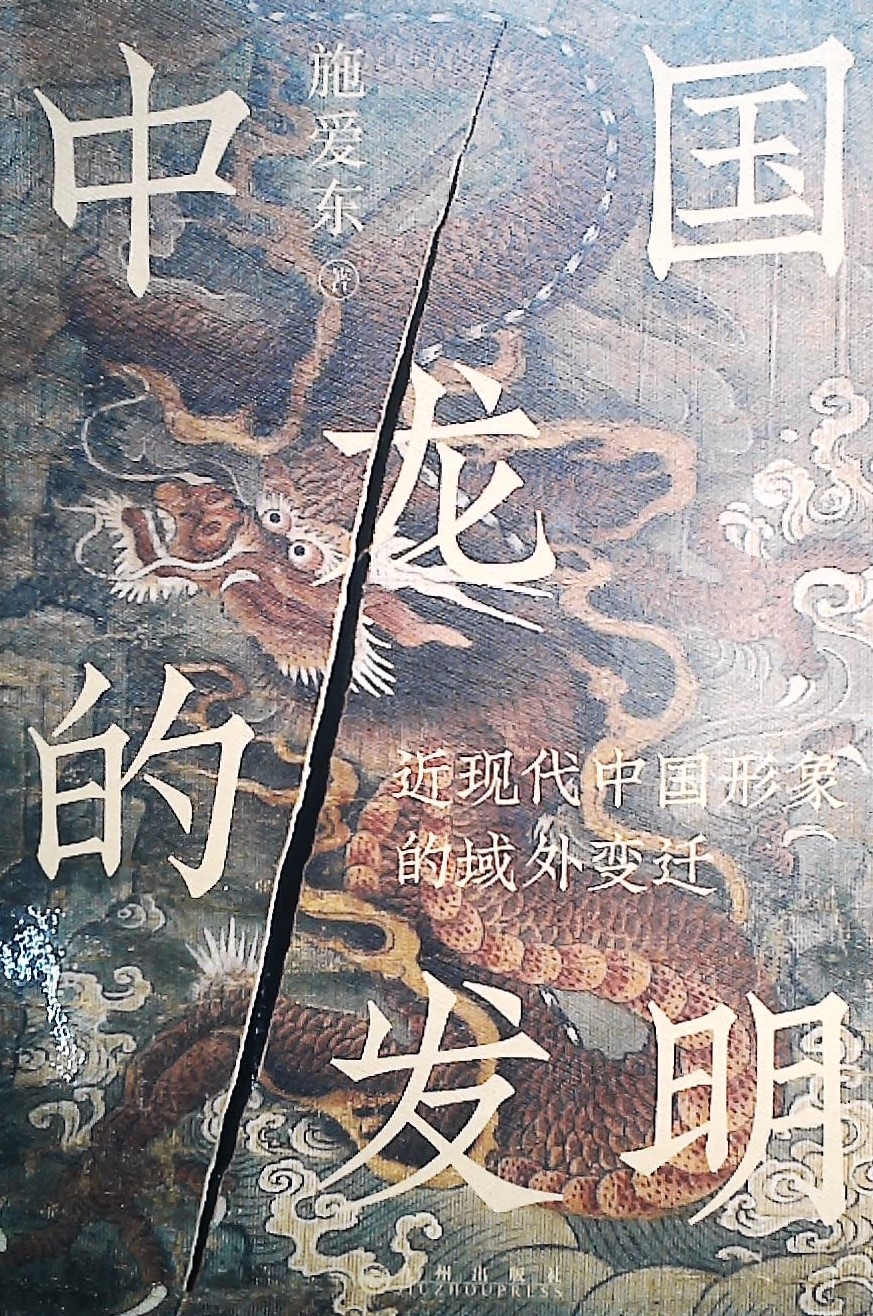 中国
龙
的
发明
施爱东 著
近现代中国形象
的域外变迁
州出版社
JIUZHOUPRESS